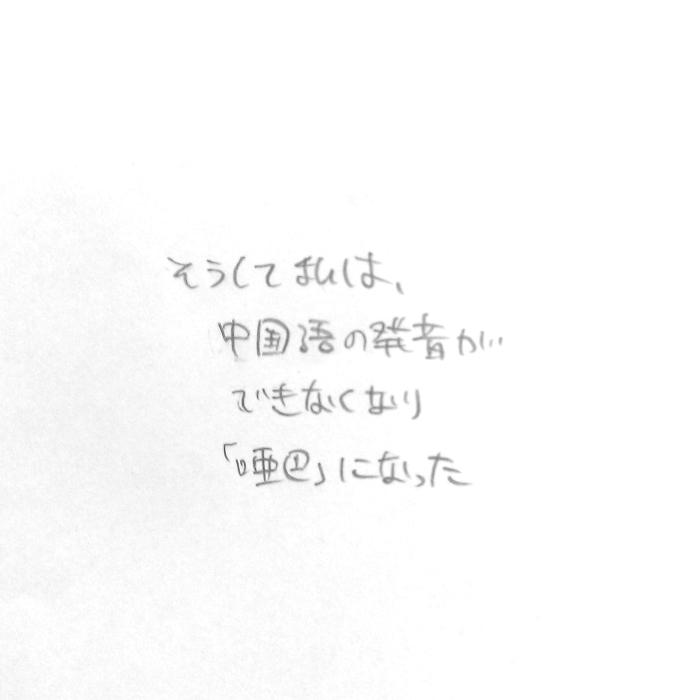 そうして私は、
中国語の発音が
できなくなり
「唖巴」になった